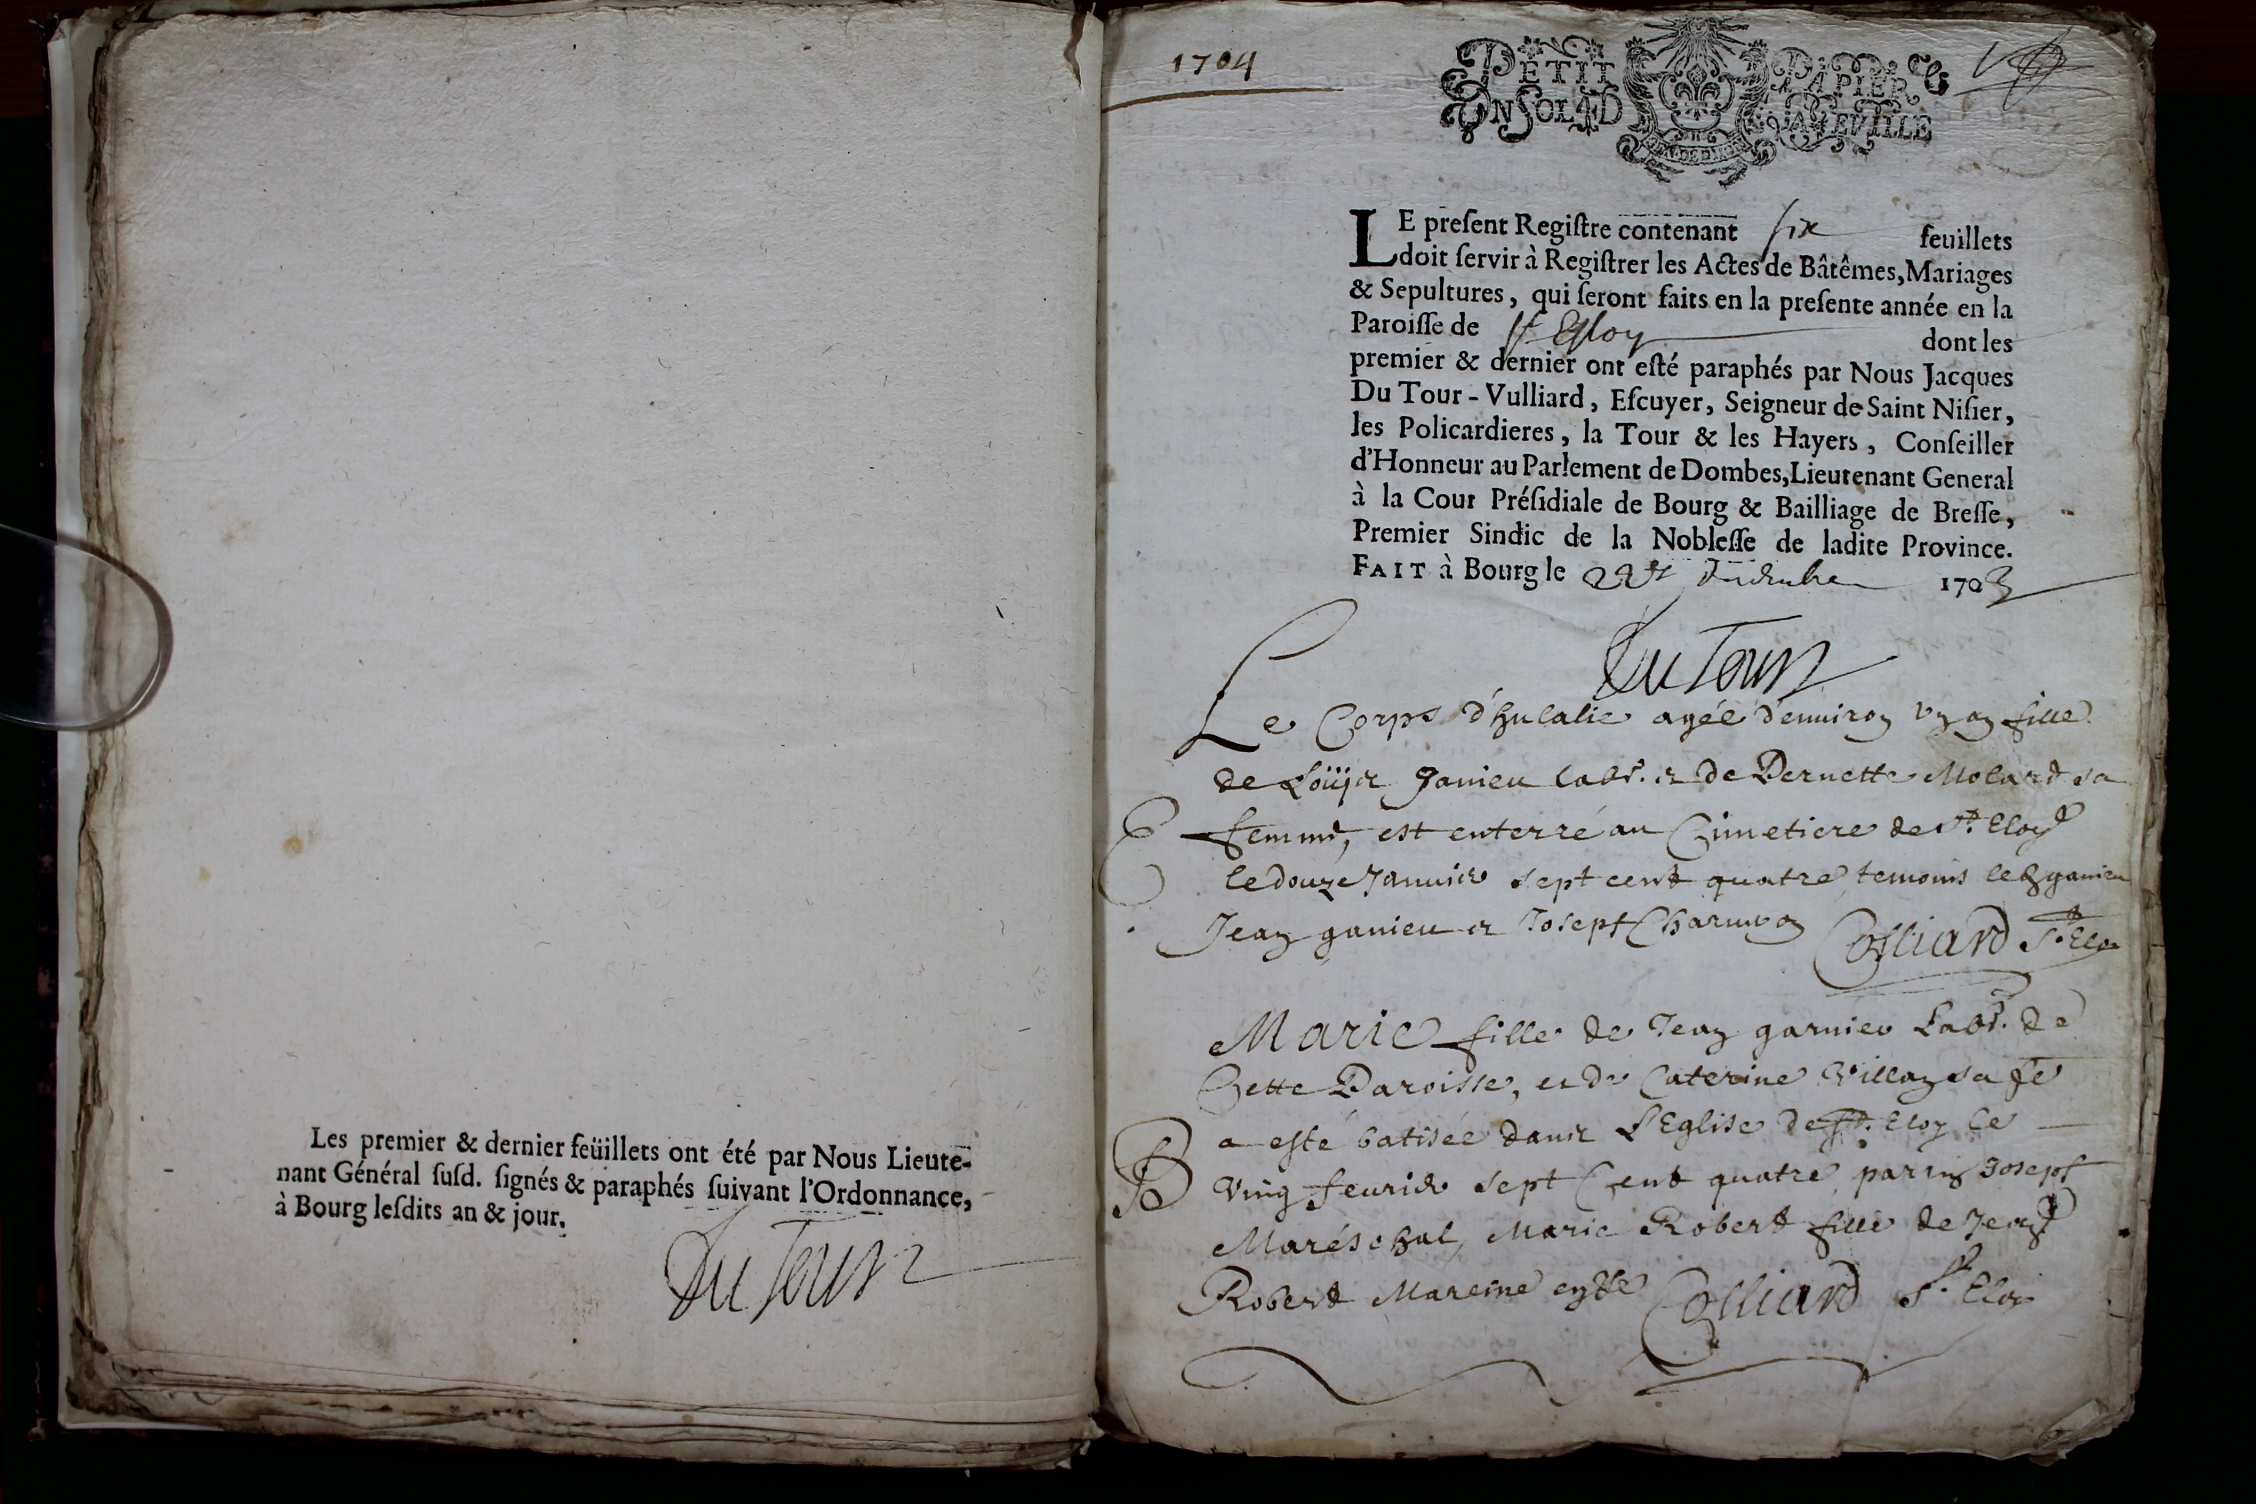 Les premier & dernier feüillets ont été par Nous Lieute-
nant Général ſuſd. ſignés & paraphés ſuivant l'Ordonnance,
à Bourg leſdits an & jour.
Du Tour
1704
PETIT PAPIER
UN SOL LA FEVILLE
LE preſent Regiſtre contenant six feuillets
doit ſervir à Regiſtrer les Actes de Bâtêmes, Mariages
& Sepultures, qui ſeront faits en la preſente année en la
Paroiſſe de St Esloy dont les
premier & dernier ont eſté paraphés par Nous Jacques
Du Tour-Vulliard, Eſcuyer, Seigneur de Saint Niſier,
les Policardieres, la Tour & les Hayers, Conſeiller
d'Honneur au Parlement de Dombes, Lieutenant General
à la Cour Préſidiale de Bourg & Bailliage de Breſſe,
Premier Sindic de la Nobleſſe de ladite Province.
FAIT à Bourg le 1703
Du Tour
Le Corps d'hulalie agée d'enuiron vn an fille
de Loüis ganieu labr. et de Pernette Molard sa
femme, est enterré au Cimetiere de St. Eloy
le douze Januier sept cent quatre temoins led ganieu
Jean ganieu et Josept Colliard St. Eloy
Marie fille de Jean garnier Labr. de
Cette Paroisse, et de Caterine Villan sa fe
B a esté batisée dans L'Eglise de St. Eloy le
ving feurier sept Cent quatre parin Josept
Maréschal, Marie Robert fille de Jean
Robert Mareine Colliard St. Eloy